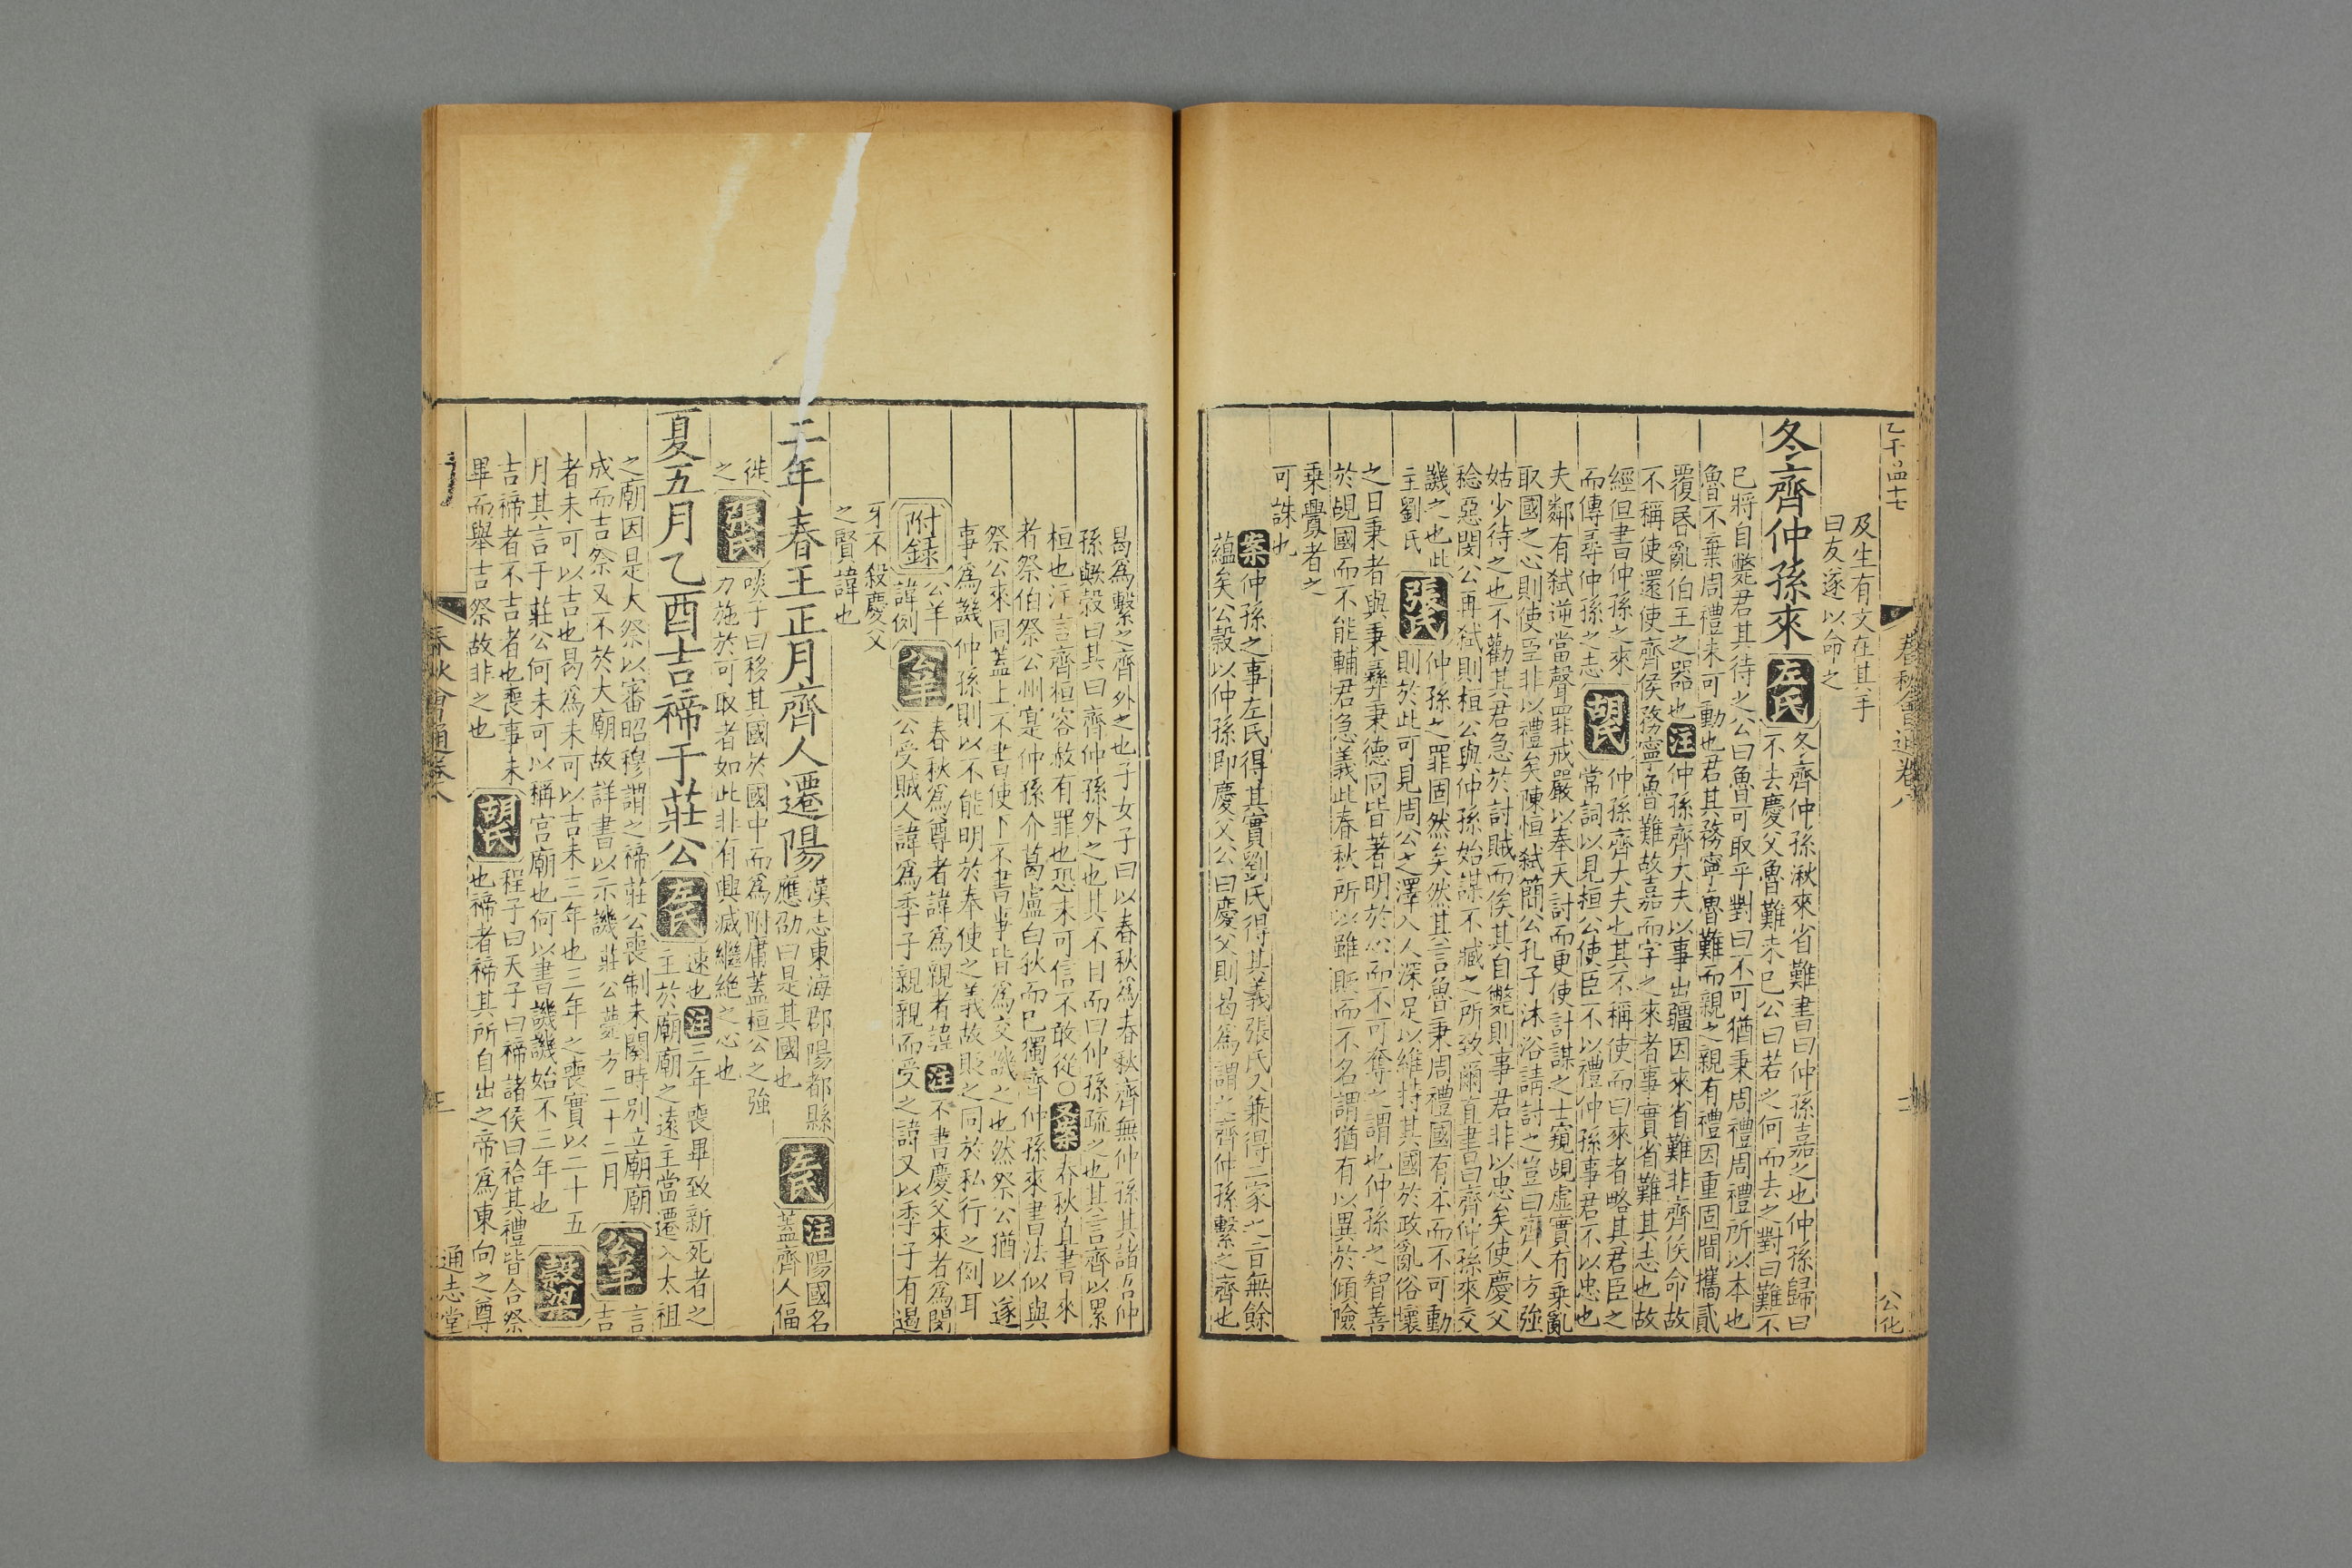 及生有文在其手
曰友遂以命之
冬齊仲孫來
左氏
冬齊仲孫湫來省難書曰仲孫嘉之也仲孫歸曰
不去慶父魯難未已公曰若之何而去之對曰難不
已將自斃君其待之公曰魯可取乎對曰不可猶秉周禮周禮所以本也
魯不棄周禮未可動也君其務寧魯難而親之親有禮因重固間攜貳
覆昬亂伯王之器也
注
仲孫齊大夫以事出疆因來省難非齊侯命故
不稱使還使齊侯務寧魯難故嘉而字之來者事實省難其志也故
經但書仲孫之來
而傳尋仲孫之志
胡氏
仲孫齊大夫也其不稱使而曰來者略其君臣之
常詞以見桓公使臣不以禮仲孫事君不以忠也
夫鄰有弑逆當聲罪戒嚴以奉天討而更使計謀之士窺覘虛實有乗亂
取國之心則使臣非以禮矣陳恒弑簡公孔子沐浴請討之豈曰齊人方強
姑少待之也不勸其君急於討賊而俟其自斃則事君非以忠矣使慶父
稔惡閔公再弑則桓公與仲孫始謀不臧之所致爾直書曰齊仲孫來交
譏之也此
主劉氏
張氏
仲孫之罪固然矣然其言魯秉周禮國有本而不可動
則於此可見周公之澤入人深足以維持其國於政亂俗壞
之日秉者與秉彞秉德同皆著明於心而不可奪之謂也仲孫之智善
於覘國而不能輔君急義此春秋所以雖貶而不名謂猶有以異於傾險
乗釁者之
可誅也
案
仲孫之事左氏得其實劉氏得其義張氏又兼得二家之旨無餘
蘊矣公穀以仲孫即慶父公曰慶父則曷爲謂之齊仲孫繫之齊也
曷爲繫之齊外之也子女子曰以春秋爲春秋齊無仲孫其諸吾仲
孫歟穀曰其曰齊仲孫外之也其不目而曰仲孫疏之也其言齊以累
桓也注言齊桓容赦有罪也恐未可信不敢從〇
又案
春秋直書來
者祭伯祭公州寔仲孫介葛盧白狄而已獨齊仲孫來書法似與
祭公來同蓋上不書使下不書事皆爲交譏之也然祭公猶以遂
事爲譏仲孫則以不能明於奉使之義故貶之同於私行之例耳
附錄
公羊
諱例
公羊
春秋爲尊者諱爲親者諱
注
不書慶父來者爲閔
公受賊人諱爲季子親親而受之諱又以季子有遏
牙不殺慶父
之賢諱也
二年春王正月齊人遷陽
漢志東海郡陽都縣
應劭曰是其國也
左氏
注
陽國名
蓋齊人偪
徙
之
張氏
啖子曰移其國於國中而爲附庸蓋桓公之強
力施於可取者如此非有興滅繼絶之心也
夏五月乙酉吉禘于莊公
左氏
速也
注
三年喪畢致新死者之
主於廟廟之遠主當遷入太祖
之廟因是大祭以審昭穆謂之禘莊公喪制未闋時別立廟廟
成而吉祭又不於大廟故詳書以示譏莊公薨方二十二月
公羊
言
吉
者未可以吉也曷爲未可以吉未三年也三年之喪實以二十五
月其言于莊公何未可以稱宮廟也何以書譏譏始不三年也
穀梁
吉禘者不吉者也喪事未
畢而舉吉祭故非之也
胡氏
程子曰天子曰禘諸侯曰祫其禮皆合祭
也禘者禘其所自出之帝爲東向之尊
春秋會通卷八
通志堂